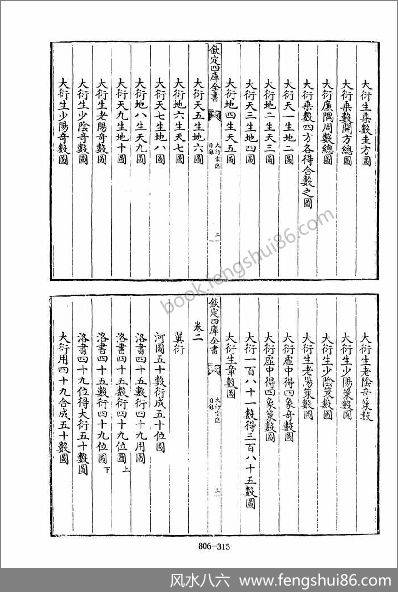 大衍生乘數圭方圖
大衍乘數開方總圖
大衍廉隅周數總圖
大衍乘數四方各得合數之圖
大衍天一生地二圖
大衍地二生天三圖
大衍天三生地四圖
大衍地四生天五圖
欽定四庫全書
大衍索隱
目錄
大衍天五生地六圖
大衍地六生天七圖
大衍天七生地八圖
大衍地八生天九圖
大衍天九生地十圖
大衍生老陽奇數圖
大衍生少陰奇數圖
大衍生少陽奇數圖
大衍生老陰奇數
大衍生少陽策數圖
大衍生少陰策數圖
大衍生老陽策數圖
大衍虛中得四象奇數圖
大衍虛中得四象策數圖
大衍一百八十一數得三百八十五數圖
大衍生章數圖
欽定四庫全書
大衍索隱
目錄
卷二
翼衍
河圖五十數衍成五十位圖
洛書四十五數衍四十九用圖
洛書四十五數衍四十九位圖上
洛書四十五數衍四十九位圖下
洛書四十九位得大衍五十數圖
大衍用四十九合成五十數圖
806-315
book.fengshui86.com
风水八六 - www.fengshui86.com